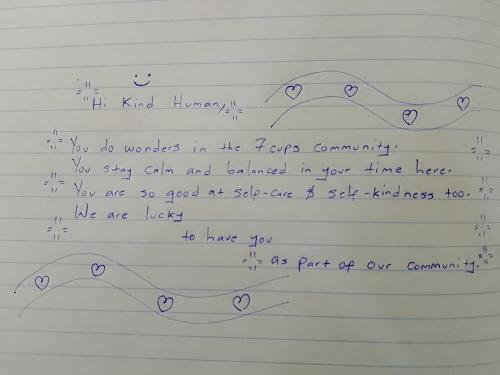 Hi Kind Human,
You do wonders in the 7cups community.
You stay calm and balanced in your time here.
You are so good at self-care & self-kindness too.
We are lucky
to have you
as part of our community.